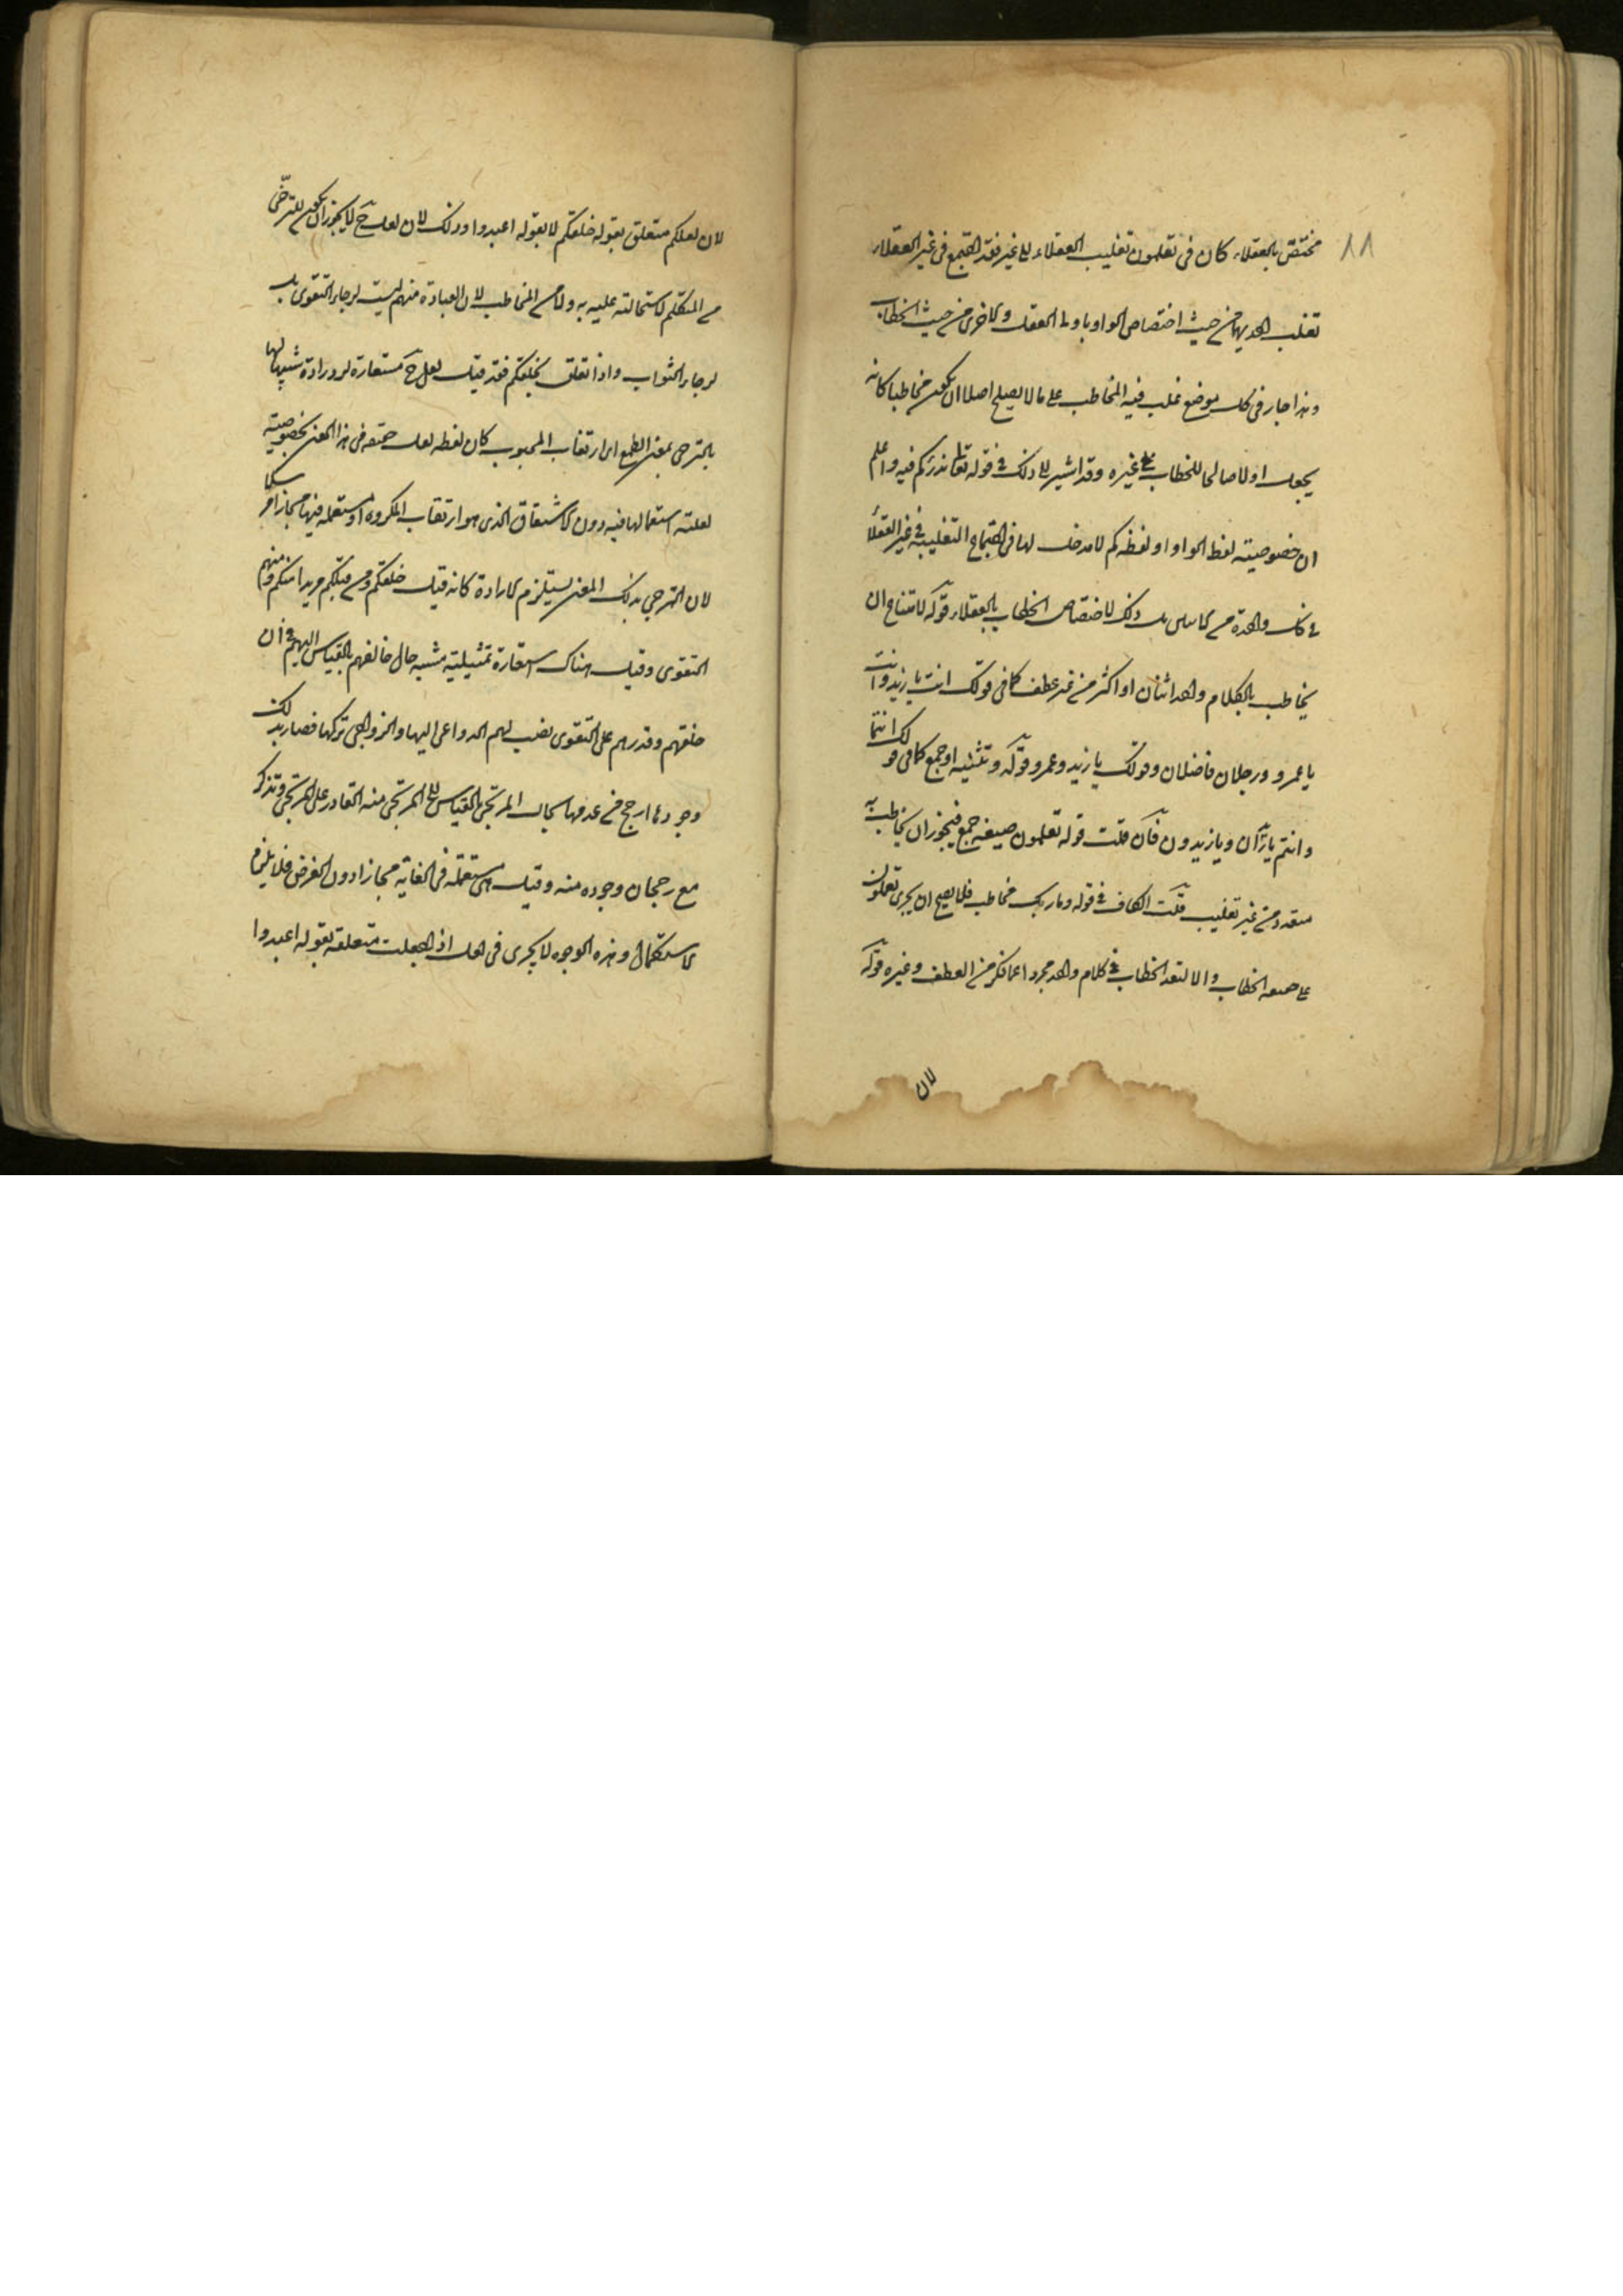 ٨٨
مختص بالعقلاء كان فى تعلمون تغليب العقلاء على غيرهم فقد اجتمع فى غير العقلاء
تغليب احديهما من حيث اختصاص الواو باولى العقل والاخرى من حيث الخطاب
وهذا جار فى كل موضع غلب فيه المخاطب على ما لا يصلح اصلا ان يكون مخاطبا كانه
يجعل اولا صالحا للخطاب غيره وقد اشير الى ذلك فى قوله تعالى يذرئكم فيه واعلم
ان خصوصية لفظ الواو او لفظه كم لا مدخل لها فى اجتماع التغليب فى غير العقلا
فى كل واحدة من ذلك لاختصاص الخطاب بالعقلاء قوله لامتناع ان
يخاطب بالكلام واحد اثنان او اكثر من غير عطف كما فى قولك انت يا زيد وانت
يا عمرو ورجلان فاضلان وقولك يا زيد وعمرو قوله وتثنيه او جمع كما فى قولك انتما
وانتم يا زيدان ويا زيدون فان قلت قوله تعلمون صيغة جمع فيجوز ان يخاطب به
متعدد من غير تغليب قلت الكاف فى قوله وما ربك مخاطب فلا يصح ان يجرى تعملون
على صيغة الخطاب والا لتعدد الخطاب فى كلام واحد مجرد اعما ذكر من العطف وغيره قوله
لان
لان لعلكم متعلق بقوله خلقكم لا بقوله اعبدوا وذلك لان لعل ح لا يجوز ان يكون للترجى
من المتكلم لاستحالته عليه به ولا من المخاطب لان العبادة منهم ليست لرجاء التقوى بل
لرجاء الثواب واذا تعلق بخلقكم فقد قيل لعل ح مستعارة للارادة تشبيها لها
بالترجى بمعنى الطمع اى ارتقاب المحبوب كان لفظه لعل حقيقة فى هذا المعنى بخصوصيته
لغلبة استعمالها فيه دون الاشتقاق الذى هو ارتقاب المكروه او مستعمله فيها مجازا مرسلا
لان الترجى بذلك المعنى يستلزم الارادة كانه قيل خلقكم ومن قبلكم مريدا منكم ومنهم
التقوى وقيل هناك استعارة تمثيلية مشبه حال خالقهم بالقياس اليهم فى ان
خلقهم وقدرهم على التقوى نصب لهم الدواعى اليها والزواجر عن تركها فصار بذلك
وجودها ارجح من عدمها بحال المرتجى بالقياس الى المرتجى منه القادر على المرتجى وتركه
مع رجحان وجوده منه وقيل هى مستعملة فى الغاية مجازا دون الغرض فلا يلزم
الاستكمال وهذه الوجوه لا يجرى فى لعل اذا جعلت متعلقة بقوله اعبدوا